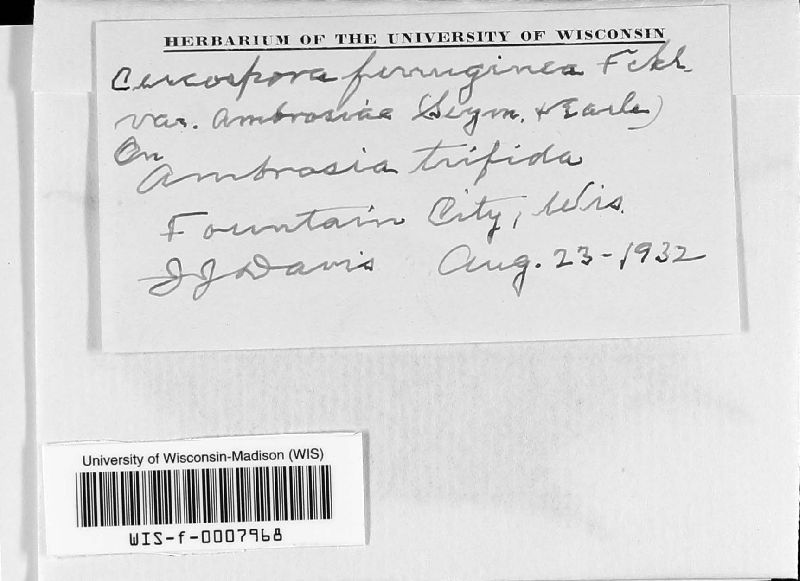 HERBARIUM OF THE UNIVERSITY OF WISCONSIN
Cercospora ferruginea Fckl.
var. Ambrosiae (Seym. & Earle)
On
Ambrosia trifida
Fountain City, Wis.
JJ Davis Aug. 23-1932
University of Wisconsin-Madison (WIS)
WIS-f-0007968